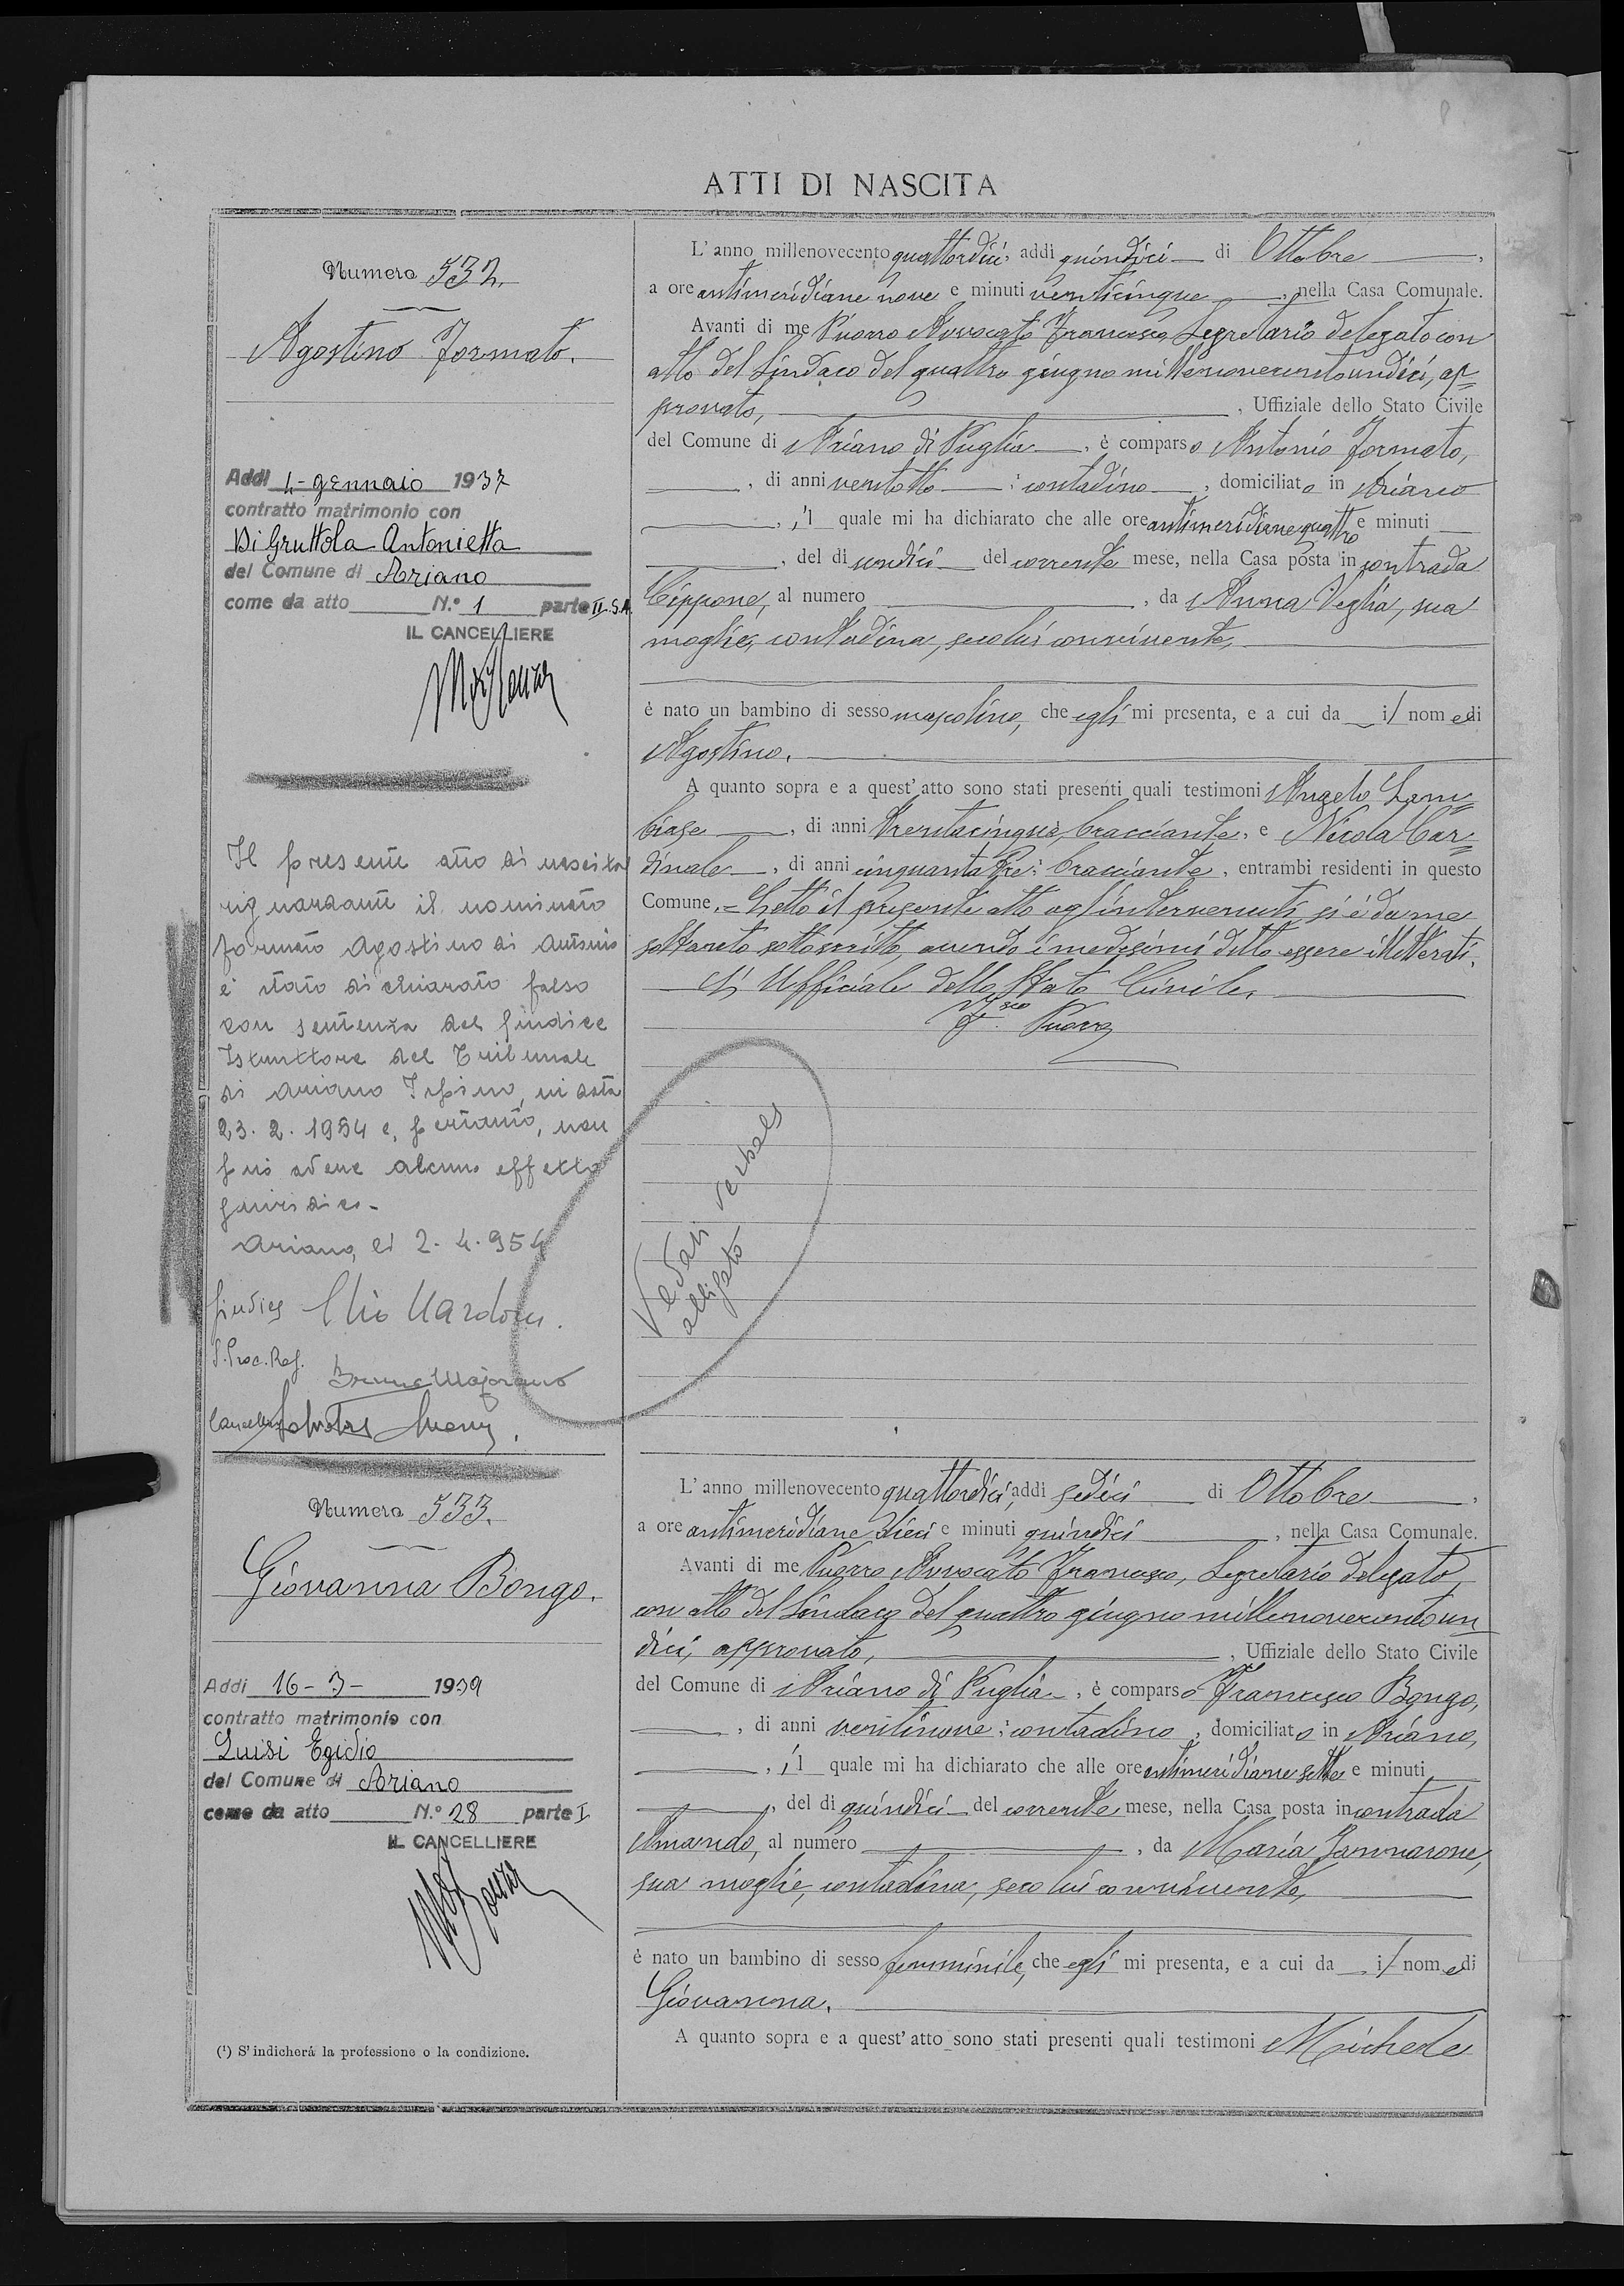 ATTI DI NASCITA
Numero 532.
Agostino Formato.
Addì 4-gennaio 1937
contratto matrimonio con
Di Gruttola Antonietta
del Comune di Ariano
come da atto N.º 1 parte II.S.A.
IL CANCELLIERE
Il presente atto di nascita
riguardante il nominato
Formato Agostino di Antonio
è stato dichiarato falso
con sentenza del Giudice
Istruttore del Tribunale
di Ariano Irpino, in data
23.2.1954 e, pertanto, non
può avere alcuno effetto
giuridico-
Ariano, lì 2.4.954
Giudice
S. Proc. Rep. Bruno Majorano
Cancelliere
L'anno millenovecento quattordici, addì quindici di Ottobre,
a ore antimeridiane nove e minuti venticinque, nella Casa Comunale.
Avanti di me Puorro Avvocato Francesco, Segretario delegato con
atto del Sindaco del quattro giugno millenovecentoundici, ap=
provato, , Uffiziale dello Stato Civile
del Comune di Ariano di Puglia, è comparso Antonio Formato,
, di anni ventotto, contadino, domiciliato in Ariano
, il quale mi ha dichiarato che alle ore antimeridiane quattro e minuti
, del dì undici del corrente mese, nella Casa posta in contrada
Cippone, al numero , da Anna Veglia, sua
moglie, contadina, seco lui convivente,
è nato un bambino di sesso mascolino, che egli mi presenta, e a cui da il nome di
Agostino.
A quanto sopra e a quest'atto sono stati presenti quali testimoni Angelo Lam=
biase, di anni trentacinque, bracciante, e Nicola Car=
dinale, di anni cinquantatre, bracciante, entrambi residenti in questo
Comune.= Letto il presente atto agl'intervenuti si è da me
soltanto sottoscritto, avendo i medesimi detto essere illetterati.
L'Ufficiale dello Stato Civile.
F.sco Puorro
Vedasi verbale
alligato
Numero 533.
Giovanna Bongo.
Addì 16-3- 1939
contratto matrimonio con
Luisi Egidio
del Comune di Ariano
come da atto N.º 28 parte I
IL CANCELLIERE
(¹) S'indicherá la professione o la condizione.
L'anno millenovecento quattordici, addì sedici di Ottobre,
a ore antimeridiane dieci e minuti quindici, nella Casa Comunale.
Avanti di me Puorro Avvocato Francesco, Segretario delegato
con atto del Sindaco del quattro giugno millenovecentoun
dici, approvato, , Uffiziale dello Stato Civile
del Comune di Ariano di Puglia, è comparso Francesco Bongo,
, di anni ventinove, contadino, domiciliato in Ariano,
, il quale mi ha dichiarato che alle ore antimeridiane sette e minuti
, del dì quindici del corrente mese, nella Casa posta in contrada
Amando, al numero , da Maria Iannarone,
sua moglie, contadina, seco lui convivente,
è nato un bambino di sesso femminile, che egli mi presenta, e a cui da il nome di
Giovanna.
A quanto sopra e a quest'atto sono stati presenti quali testimoni Michele